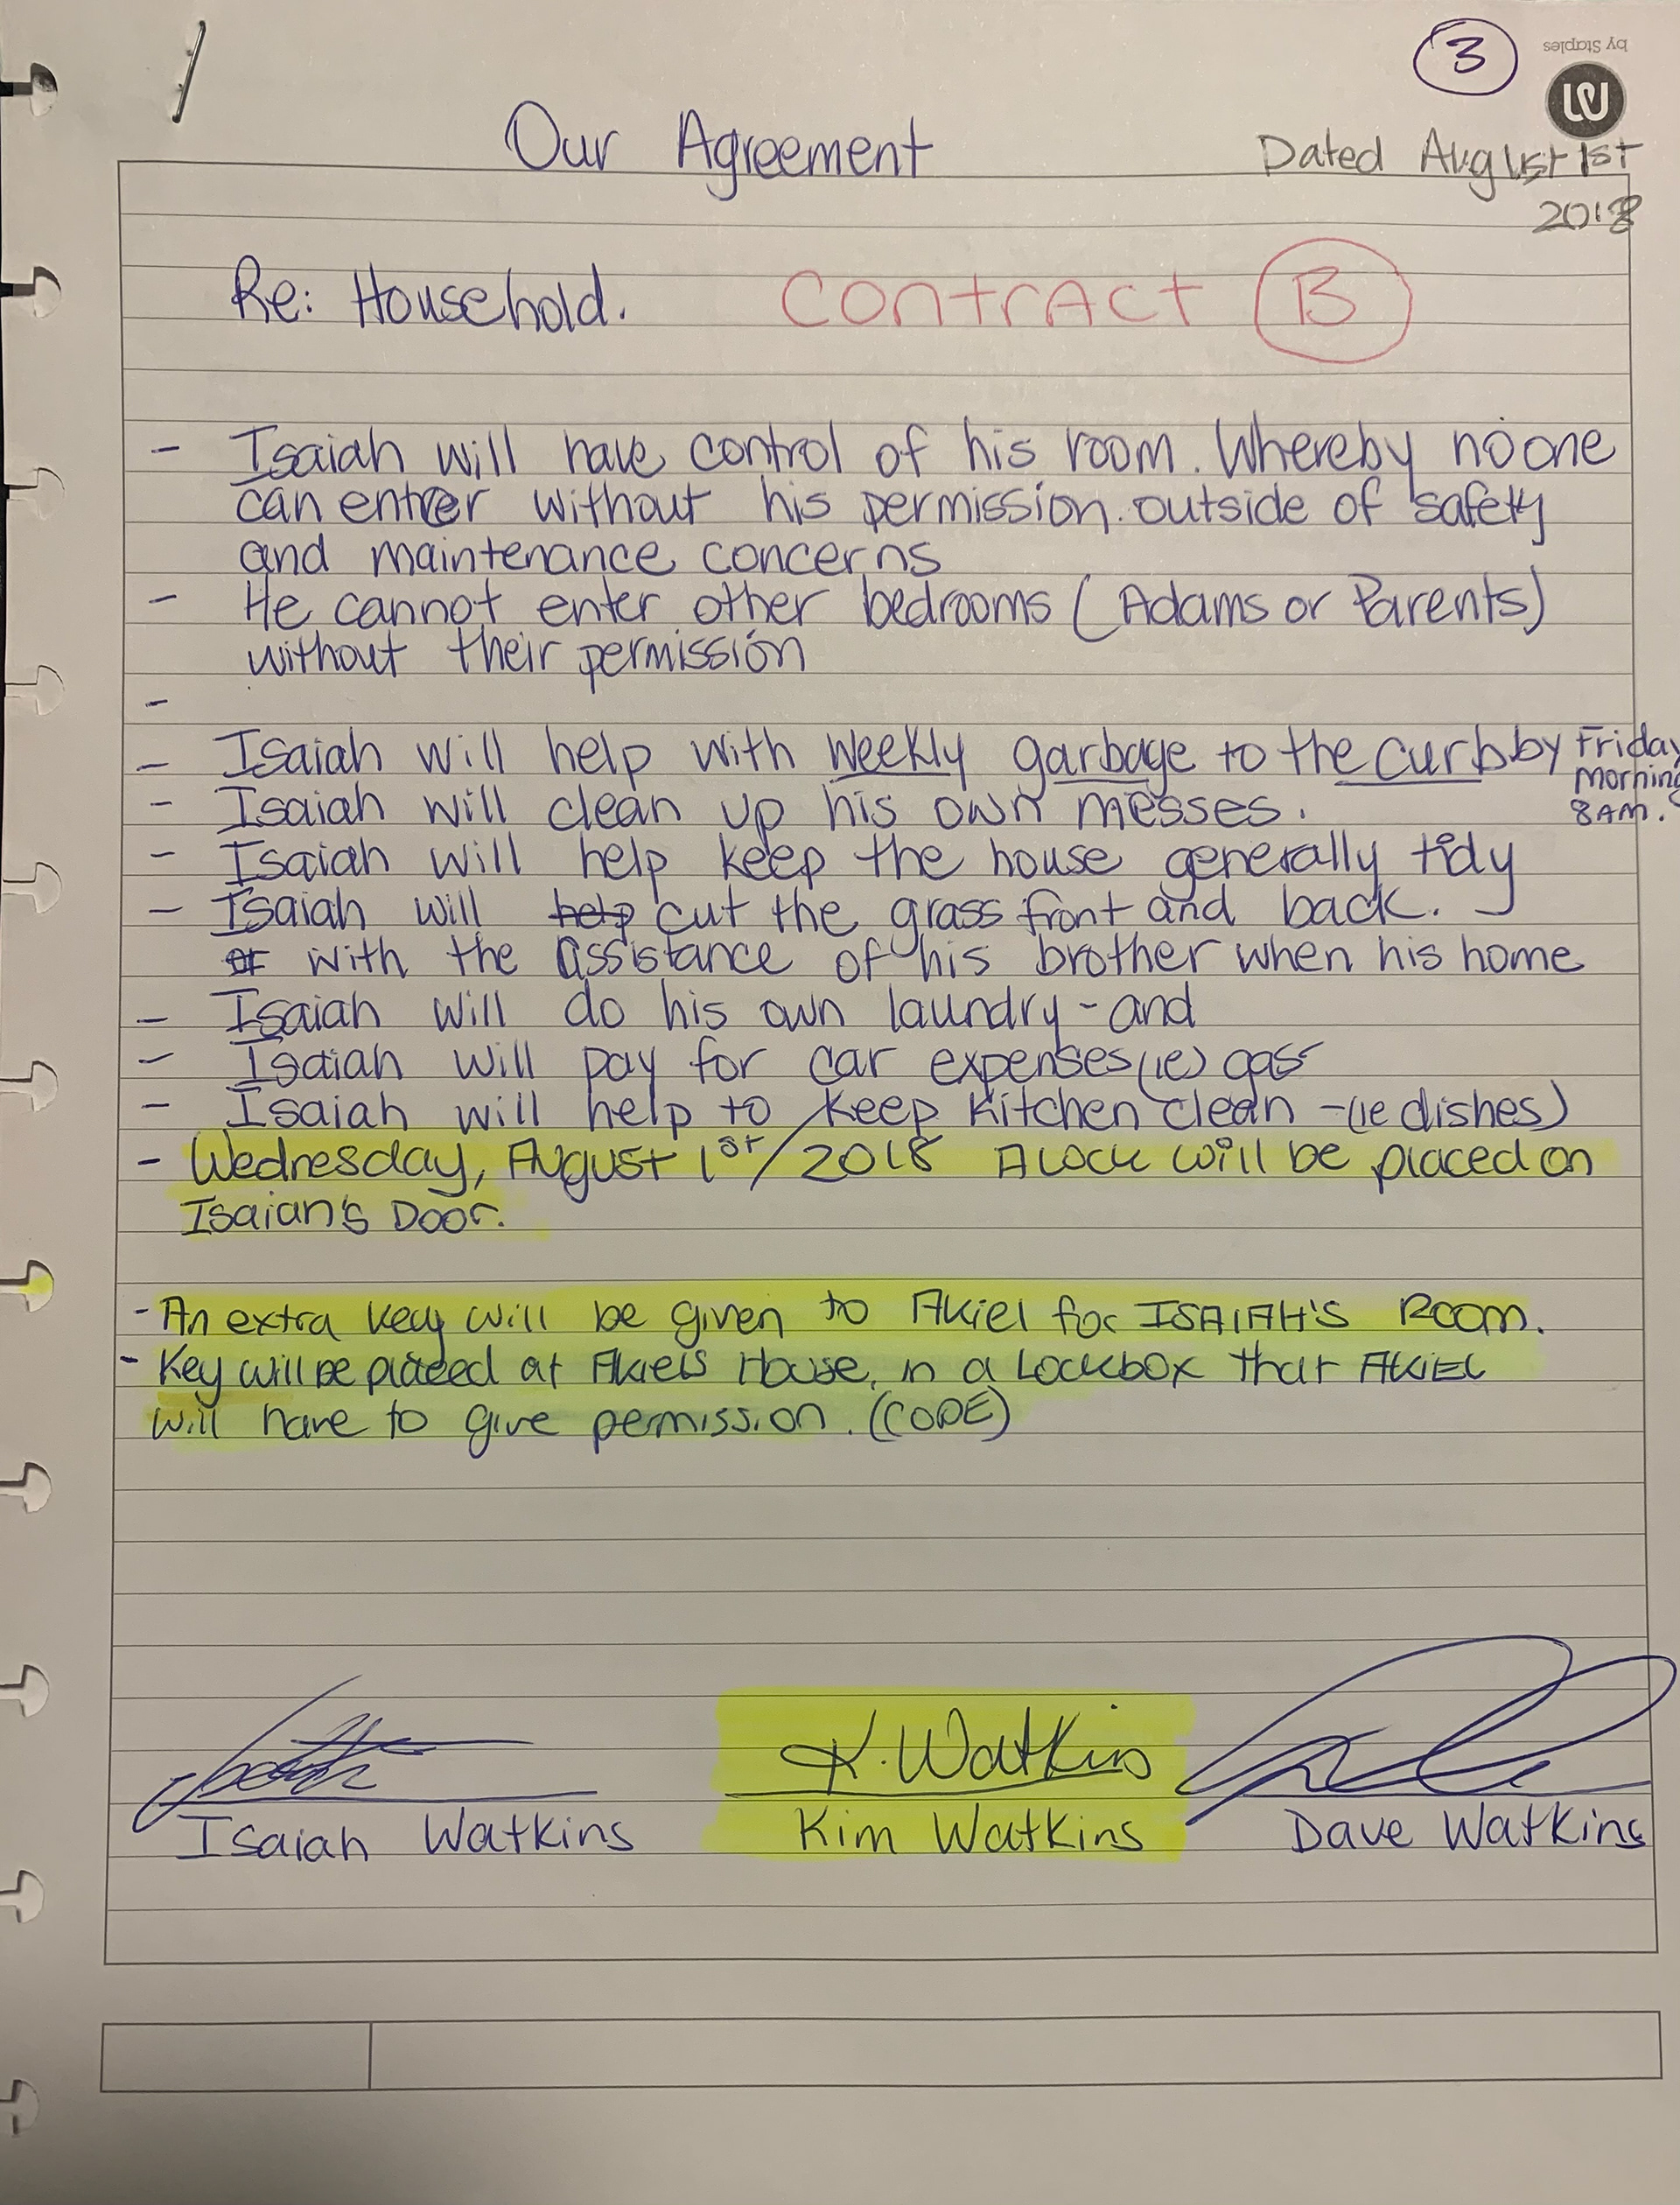 3
by Staples
Our Agreement
Dated August 1st
2018
Re: Household. Contract B
- Isaiah will have control of his room. Whereby no one
can enter without his permission. outside of safety
and maintenance concerns
- He cannot enter other bedrooms (Adams or Parents)
without their permission
-
- Isaiah will help with weekly garbage to the curb by Friday
morning
8AM.
- Isaiah will clean up his own messes.
- Isaiah will help keep the house generally tidy
- Isaiah will help cut the grass front and back.
or with the assistance of his brother when his home
- Isaiah will do his own laundry - and
- Isaiah will pay for car expenses (ie) gas
- Isaiah will help to keep kitchen clean - (ie dishes)
- Wednesday, August 1st/2018 A lock will be placed on
Isaiah's Door.
- An extra key will be given to Akiel for ISAIAH'S Room.
- Key will be placed at Akiel's House, in a Lockbox that AKIEL
will have to give permission. (CODE)
K. Watkins
Isaiah Watkins Kim Watkins Dave Watkins